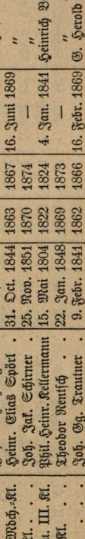 Mdch.-Kl. Heinr. Elias Spörl . 31. Oct. 1844 1863 1867 16. Juni 1869 "
. . Joh. Jak. Schirner . 25. Nov. 1851 1870 1874 — "
u. III. Kl. Phil. Heinr. Kellermann 15. Mai 1804 1822 1824 4. Jan. 1841 Heinrich B
Kl. . . Theodor Rentsch . . 22. Jan. 1848 1869 1873 — "
. . Joh. Gg. Trautner . . 9. Febr. 1841 1862 1866 16. Febr. 1869 G. Herold